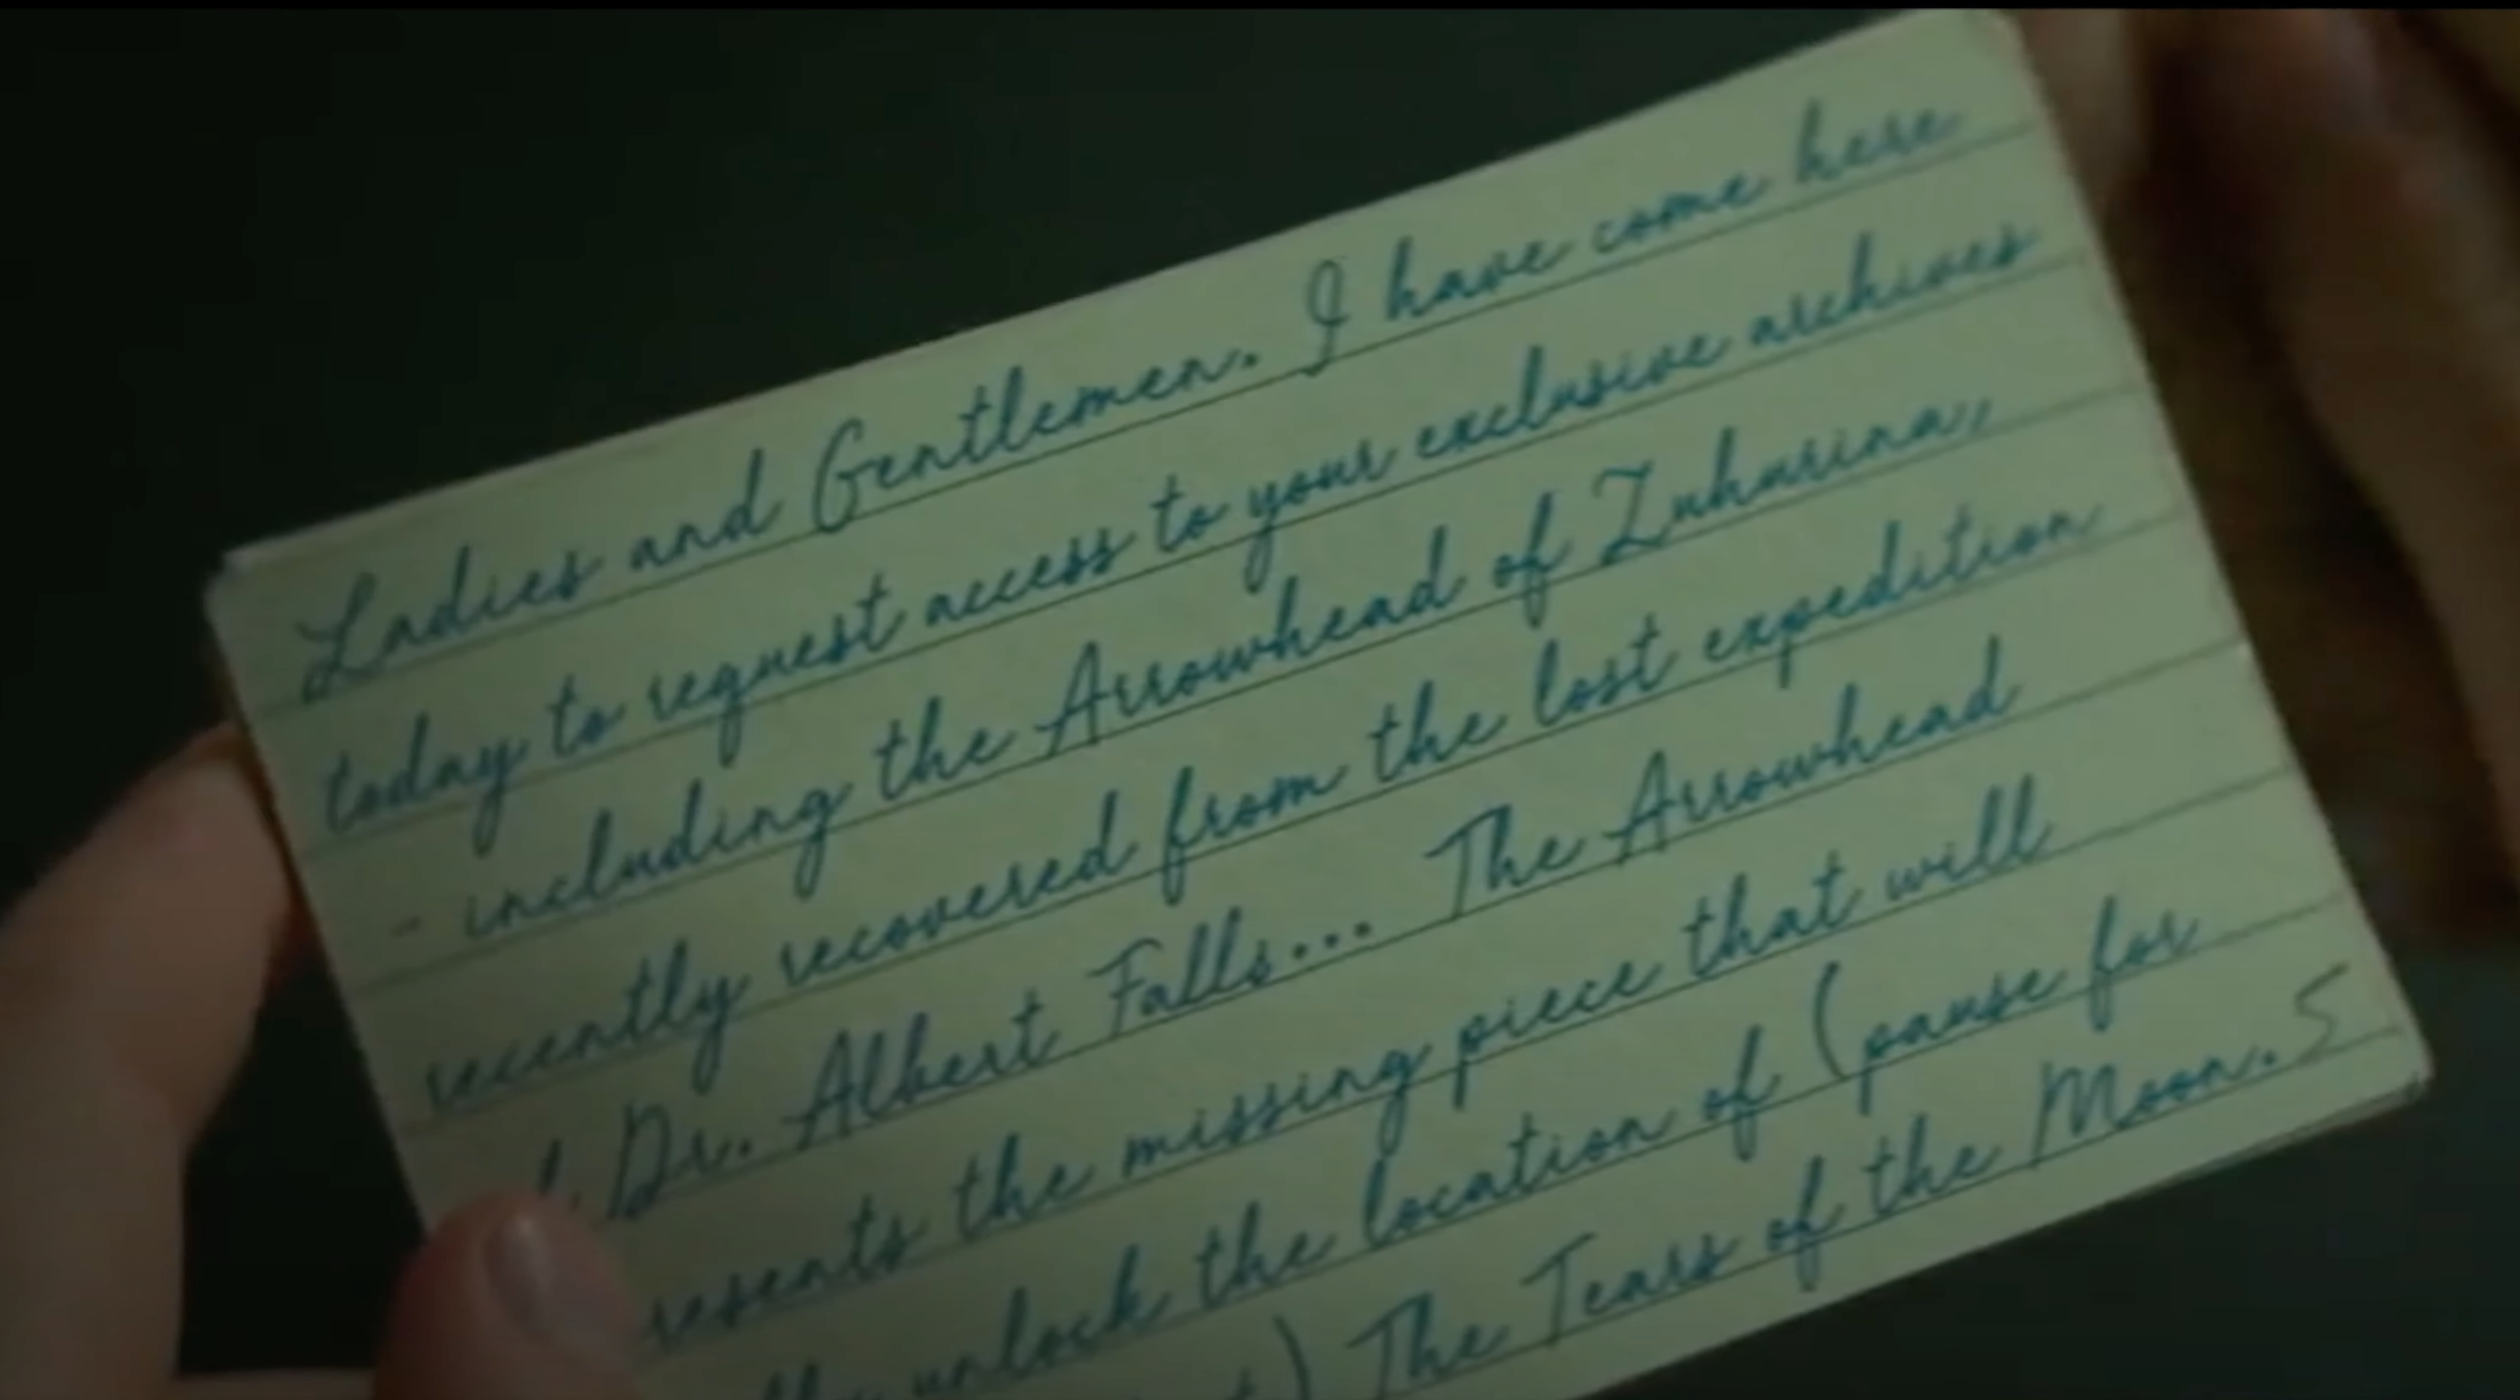 Ladies and Gentlemen. I have come here
today to request access to your exclusive archives
- including the Arrowhead of Zuhurina,
recently recovered from the lost expedition
Dr. Albert Falls... The Arrowhead
resents the missing piece that will
unlock the location of (pause for
) The Tears of the Moon. 5